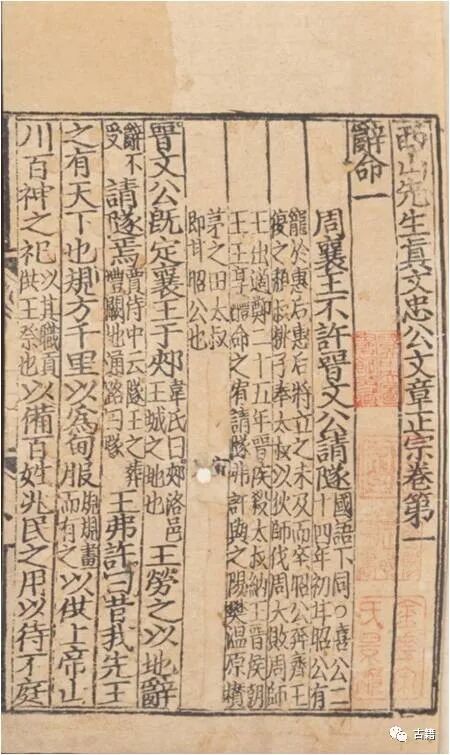 西山先生眞文忠公文章正宗卷第一
辭命一
周襄王不許晉文公請隧國語下同○僖公二十四年初甘昭公有
寵於惠后惠后將立之未及而卒昭公奔齊王
復之頹叔桃子奉太叔以狄師伐周大敗周師
王出適鄭二十五年晉侯殺太叔納王晉侯朝
王王享醴命之宥請隧弗許與之陽樊溫原欑
茅之田太叔
即甘昭公也
晉文公既定襄王于郟韋氏曰郟洛邑王城之地也王勞之以地辭
辭不受請隧焉賈侍中云隧王之葬禮闕地通路曰隧王弗許曰昔我先王
之有天下也規方千里以爲甸服規規畫而有之以供上帝山
川百神之祀以其職貢供王祭也以備百姓兆民之用以待不庭
古籍